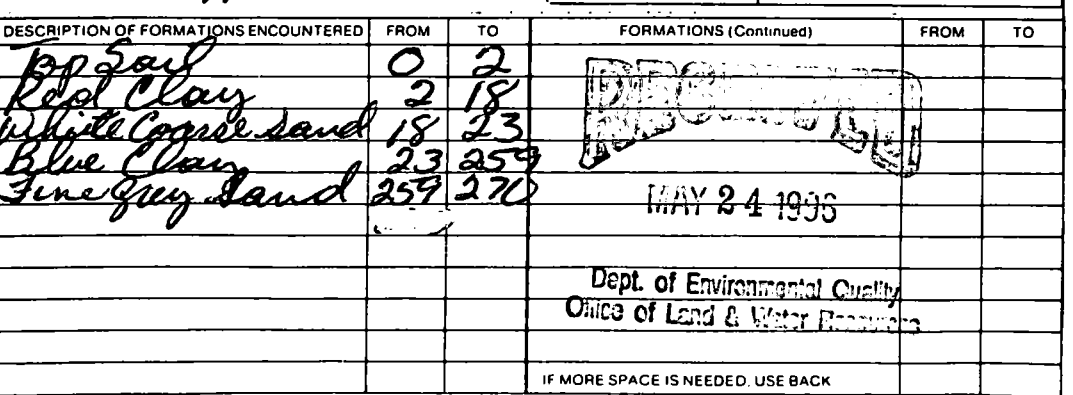 DESCRIPTION OF FORMATIONS ENCOUNTERED FROM TO FORMATIONS (Continued) FROM TO
Top Soil 0 2
Red Clay 2 18
White Coarse Sand 18 23
Blue Clay 23 259
Fine Grey Sand 259 270
RECEIVED
MAY 24 1996
Dept. of Environmental Quality
Office of Land & Water Resources
IF MORE SPACE IS NEEDED, USE BACK